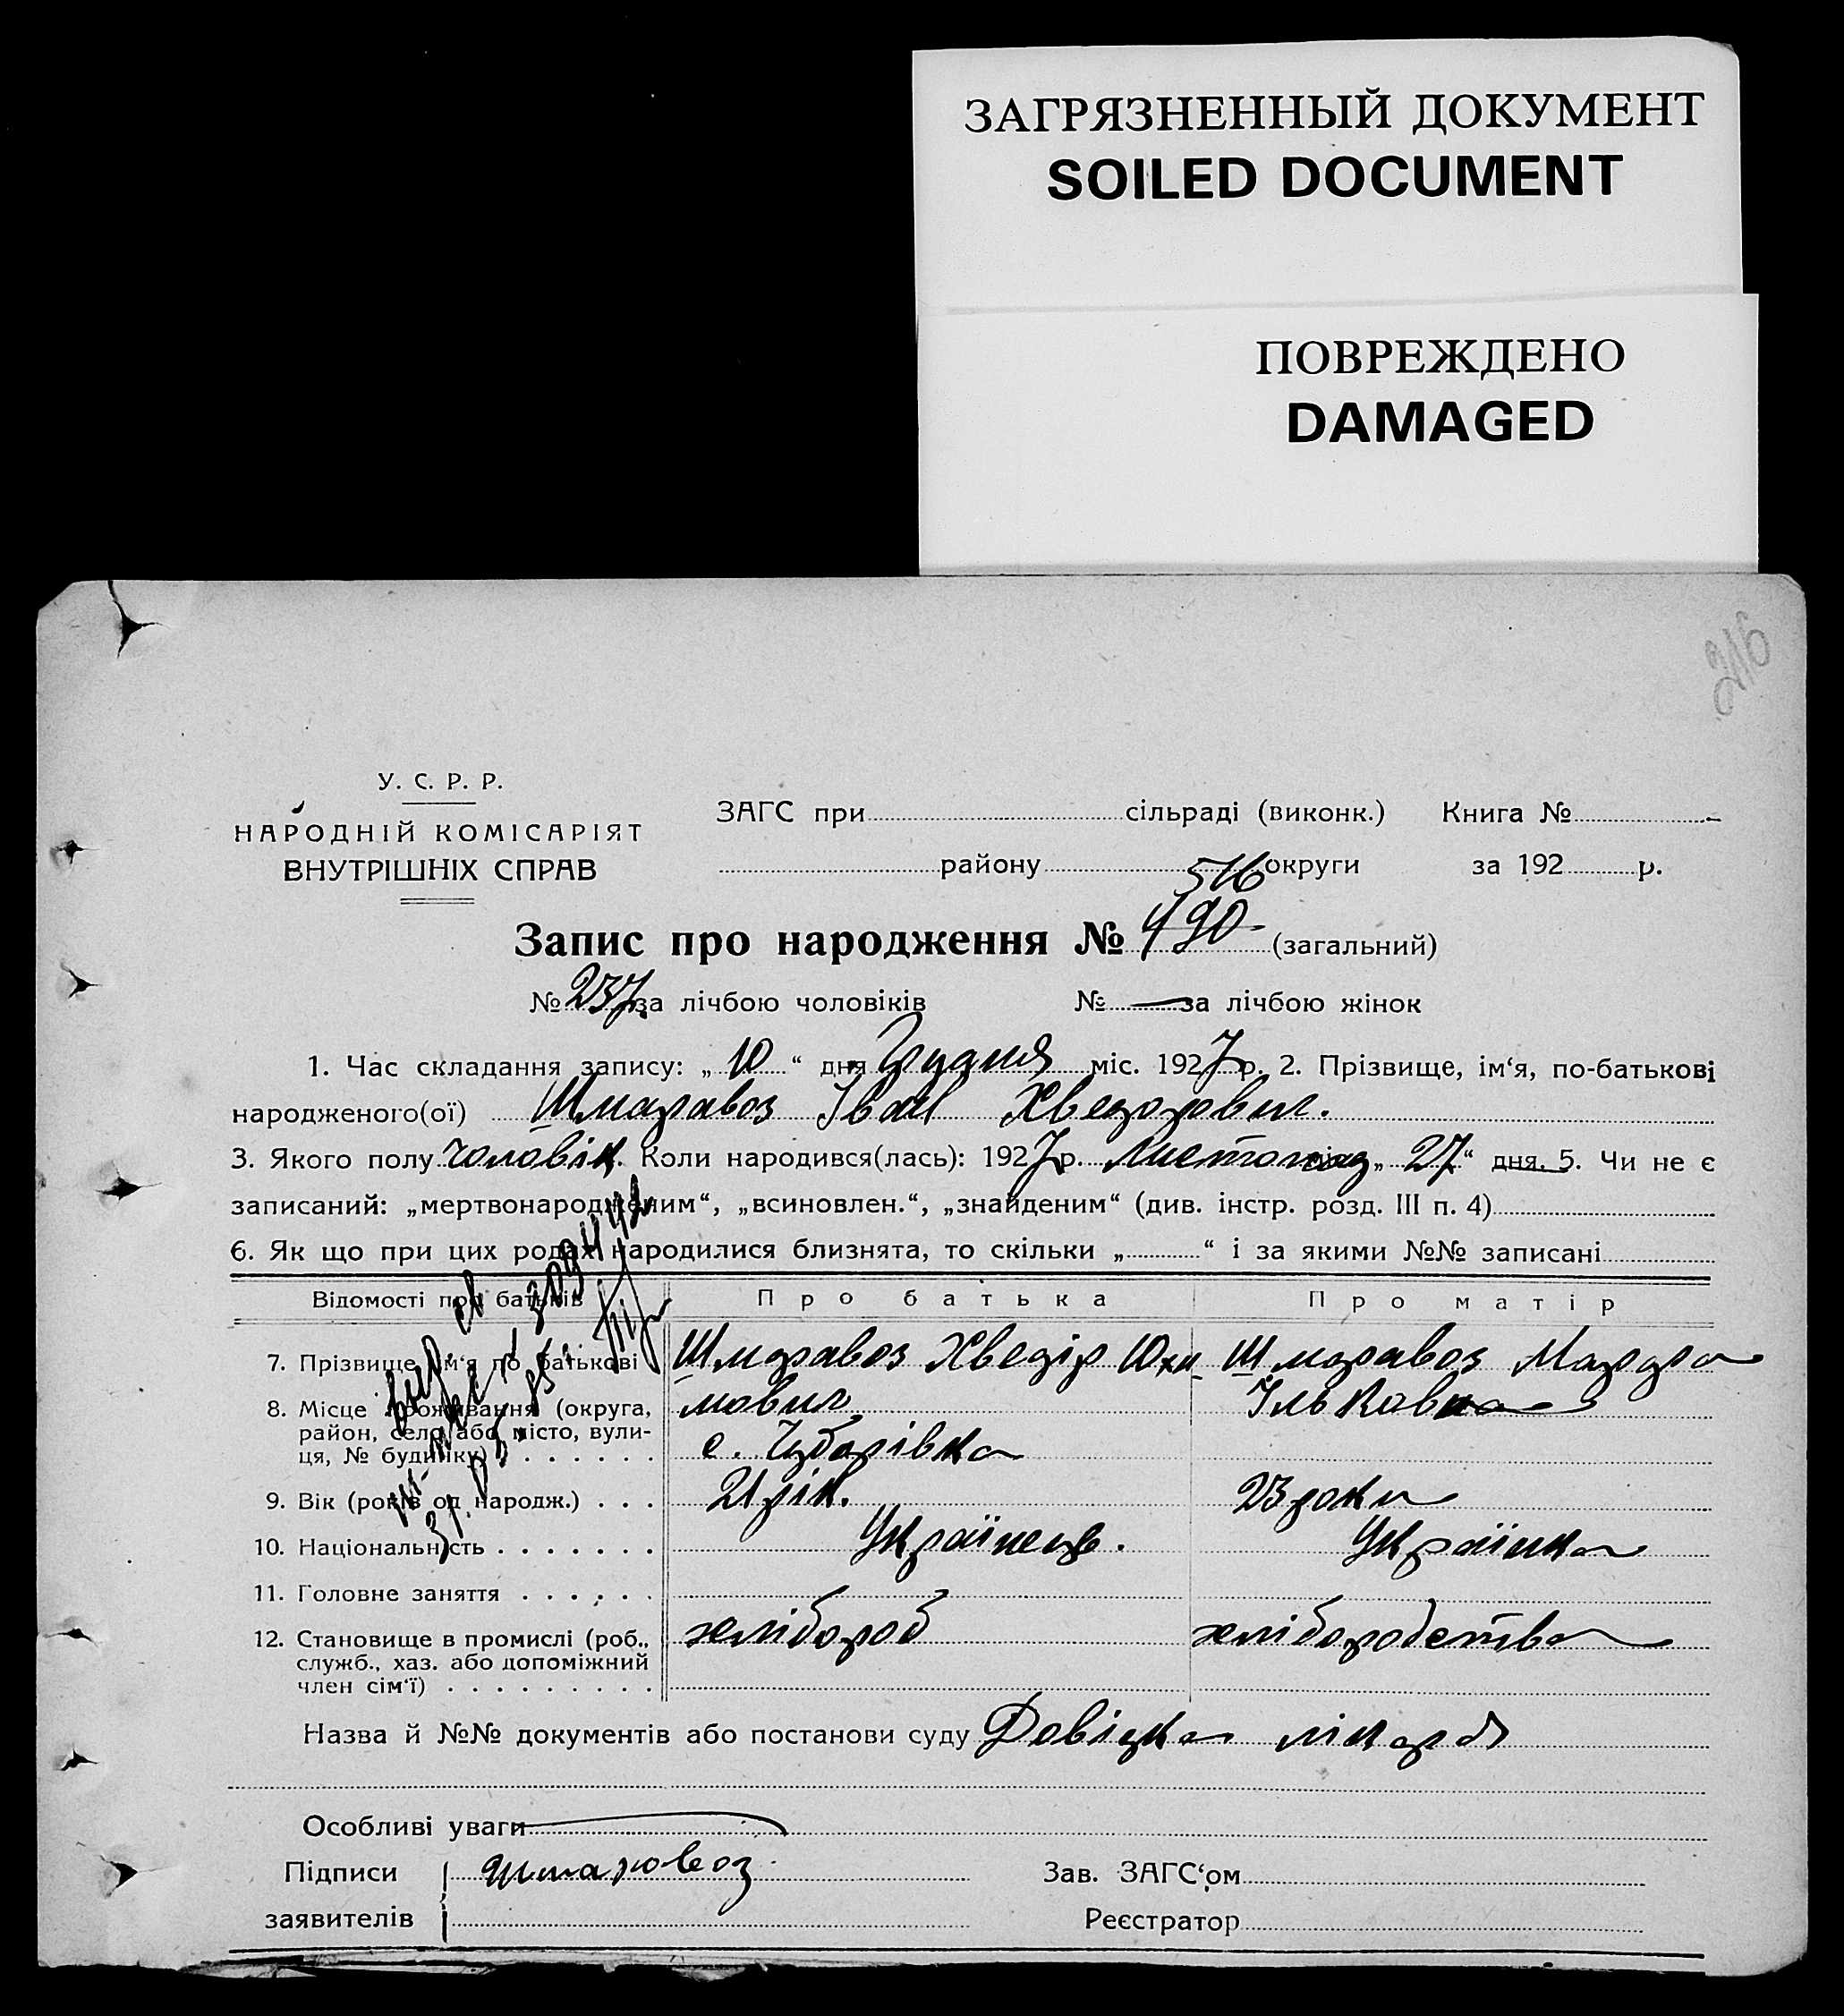 ЗАГРЯЗНЕННЫЙ ДОКУМЕНТ
SOILED DOCUMENT
ПОВРЕЖДЕНО
DAMAGED
216
У. С. Р. Р.
НАРОДНІЙ КОМІСАРІЯТ
ВНУТРІШНІХ СПРАВ
ЗАГС при сільраді (виконк.) Книга №
району округи за 192 р.
516
Запис про народження № 490 (загальний)
№ 237 за лічбою чоловіків № — за лічбою жінок
1. Час складання запису: „ 10 “ дня Грудня міс. 1927 р. 2. Прізвище, ім‘я, по-батькові
народженого(ої) Шмаравоз Іван Хведорович.
3. Якого полу чоловік. Коли народився(лась): 1927 р. Листопад „ 27 “ дня. 5. Чи не є
записаний: „мертвонародженим“, „всиновлен.“, „знайденим“ (див. інстр. розд. III п. 4)
6. Як що при цих родах народилися близнята, то скільки „ “ і за якими №№ записані
Відомості про батьків Про батька Про матір
7. Прізвище, ім‘я по батькові Шмаравоз Хведір Юхи Шмаравоз
8. Місце проживання (округа, мович Ільковна
район, село або місто, вули-
ця, № будинку) с. Чубарівка
9. Вік (років од народж.) 21 рік. 23 роки
10. Національність Українець. Українка
11. Головне заняття
12. Становище в промислі (роб., хлібороб хліборобства
служб., хаз. або допоміжний
член сім‘ї)
Назва й №№ документів або постанови суду Довідка лікаря
Особливі уваги
Підписи Шмаровоз
Зав. ЗАГС‘ом
заявителів Реєстратор